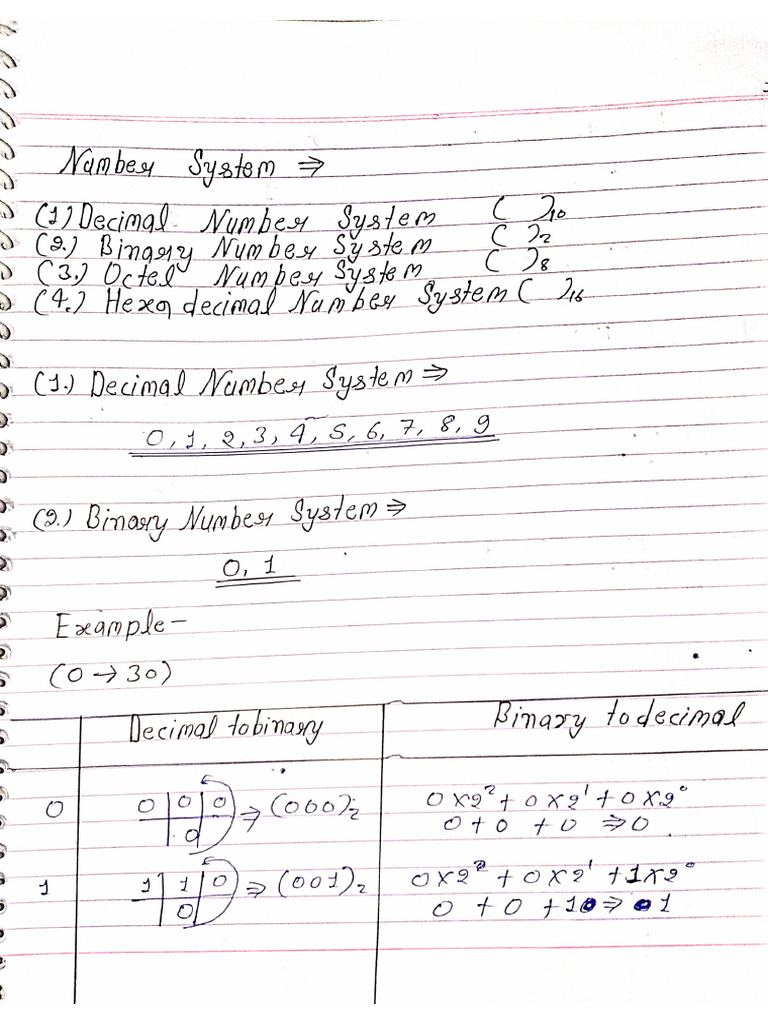 Number System ⇒
(1) Decimal Number System ( )₁₀
(2.) Binary Number System ( )₂
(3.) Octel Number System ( )₈
(4.) Hexa decimal Number System ( )₁₆
(1.) Decimal Number System ⇒
0, 1, 2, 3, 4, 5, 6, 7, 8, 9
(2.) Binary Number System ⇒
0, 1
Example –
(0 → 30)
Decimal to binary Binary to decimal
0 0 0 0 ⇒ (000)₂ 0×2² + 0×2¹ + 0×2⁰
0 0 + 0 + 0 ⇒ 0
1 1 1 0 ⇒ (001)₂ 0×2² + 0×2¹ + 1×2⁰
0 0 + 0 + 1 ⇒ 1